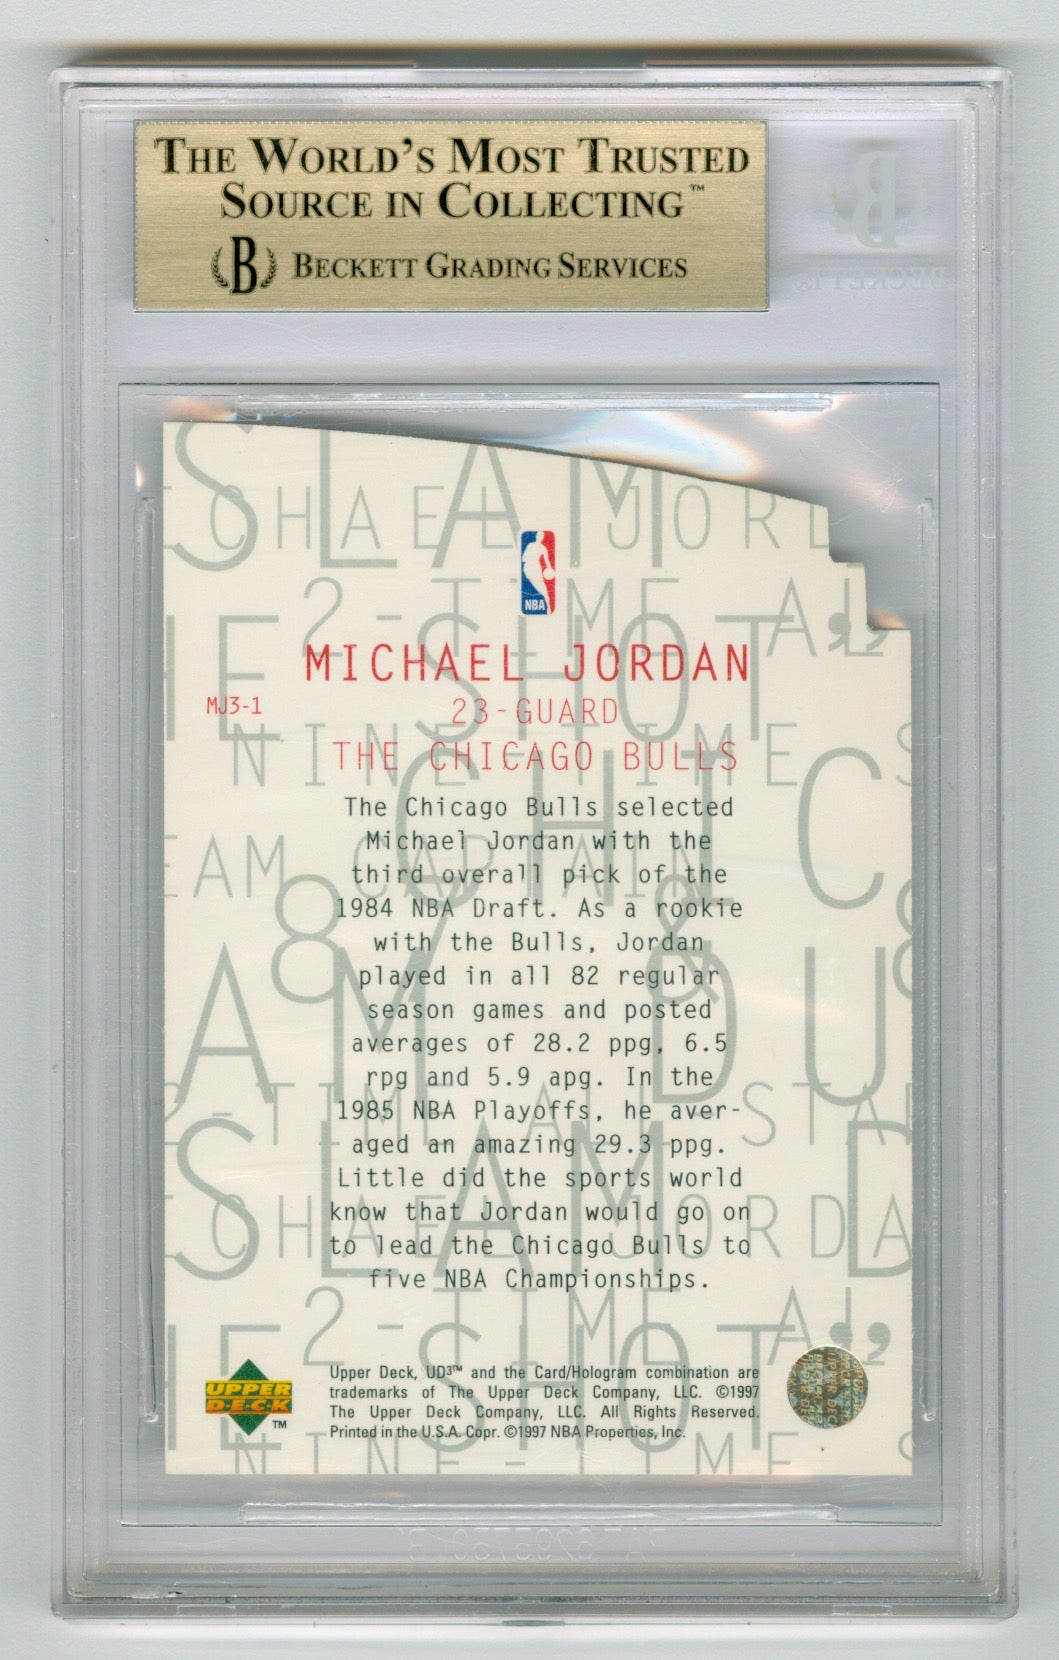 THE WORLD'S MOST TRUSTED
SOURCE IN COLLECTING™
B BECKETT GRADING SERVICES
BECKETT®
SLAM
CHAEL JORD
2-TIME AL
NBA
HE SHOT"
MICHAEL JORDAN
MJ3-1
23-GUARD
NINE-TIME S
THE CHICAGO BULLS
CHIC
The Chicago Bulls selected
Michael Jordan with the
EAM CAPTAIN
third overall pick of the
1984 NBA Draft. As a rookie
with the Bulls, Jordan
played in all 82 regular
season games and posted
AM DU
averages of 28.2 ppg, 6.5
rpg and 5.9 apg. In the
2-TIME ALL-STAR
1985 NBA Playoffs, he aver-
aged an amazing 29.3 ppg.
SLAM D
Little did the sports world
know that Jordan would go on
CHAEL JORDA
to lead the Chicago Bulls to
five NBA Championships.
2-TIME AL
HE SHOT"
UPPER
DECK
™
Upper Deck, UD3™ and the Card/Hologram combination are
trademarks of The Upper Deck Company, LLC. ©1997
The Upper Deck Company, LLC. All Rights Reserved.
Printed in the U.S.A. Copr. ©1997 NBA Properties, Inc.
UPPER DECK
NINE-TIME S